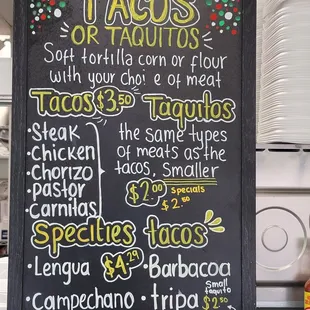 TACOS
OR TAQUITOS
Soft tortilla corn or flour
with your choi e of meat
Tacos $3.50
• Steak
• Chicken
• Chorizo
• pastor
• Carnitas
Taquitos
the same types
of meats as the
tacos, Smaller
$2.00 Specials
$2.50
Specilties tacos
• Lengua $4.29 • Barbacoa
• Campechano • tripa
Small
taquito
$2.50